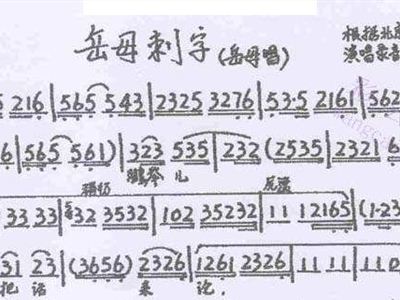 岳母刺字(岳母唱)
根据北
演唱录音
5 216 | 565 543 | 2325 3276 | 53·5 2161 | 562
6 | 565 561) | 323 535 | 232 (2535 | 2321 6
鹏举 儿
33 33 | 32 3532 | 102 35232 | 11 12165 | (1·23
31 23 | (3656) 2326 | 1261 2326 | 11 11 | 110
把话 来 论.